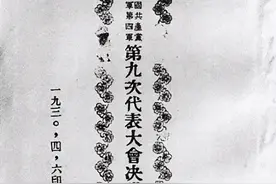 國共產黨
軍第四軍
第九次代表大會決
一九三〇，四，六印